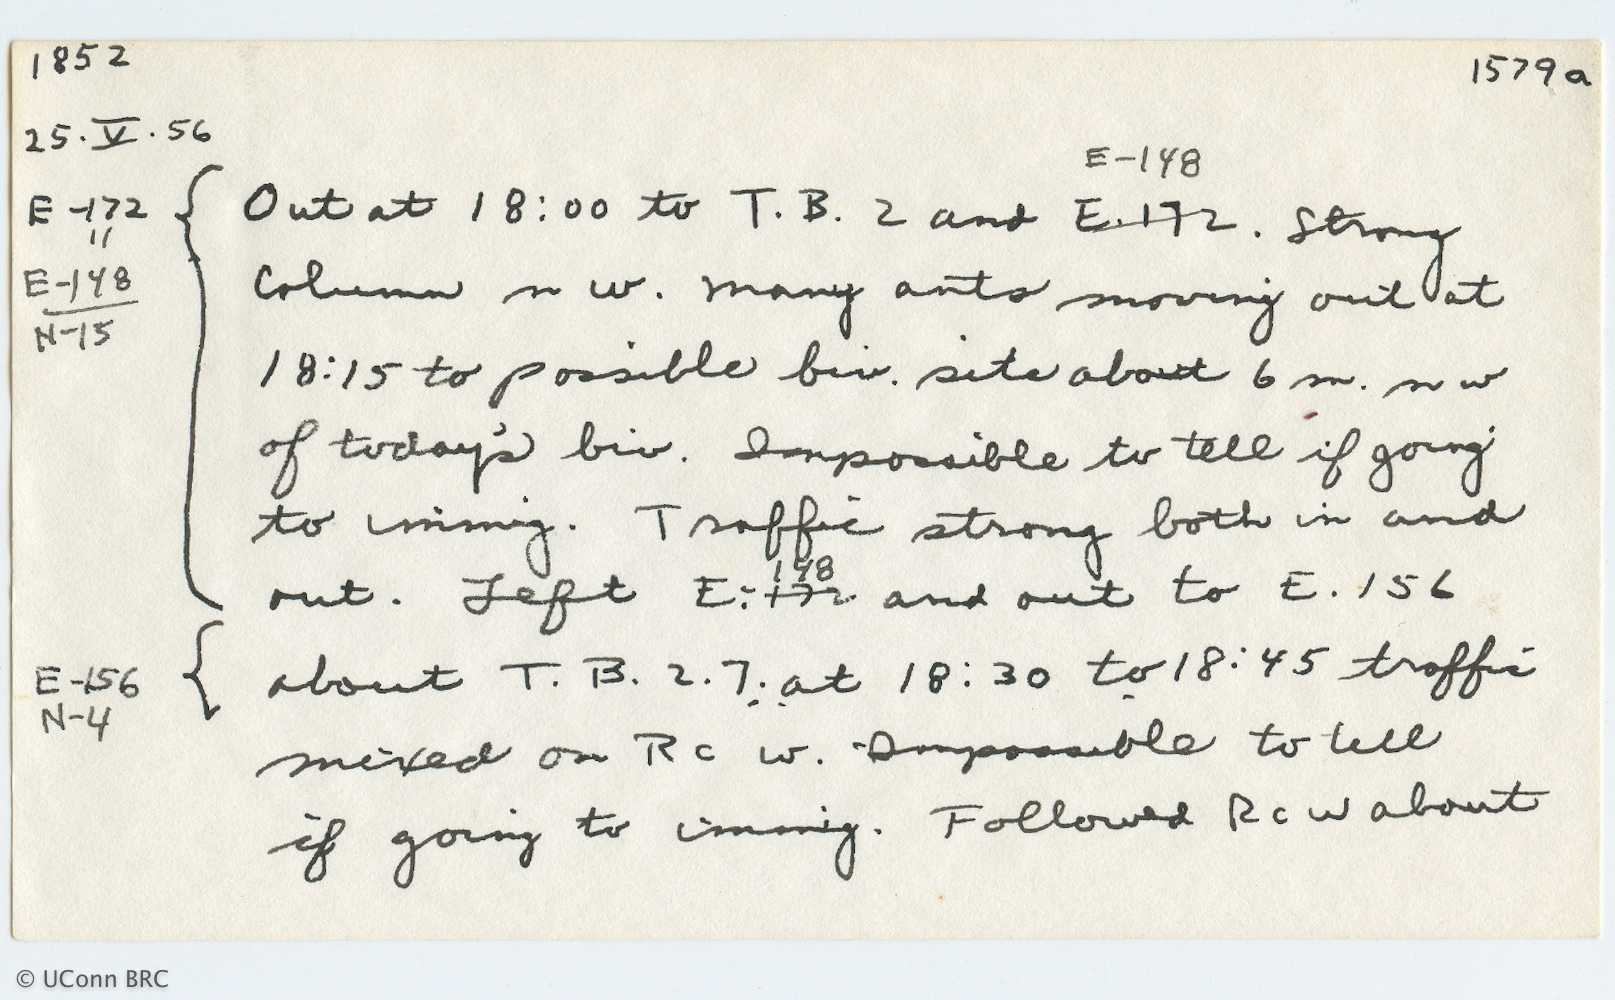 1852
1579a
25.V.56
E-148
E-172 Out at 18:00 to T.B. 2 and E.172. Strong
"
E-148 Column n w. Many ants moving out at
N-15
18:15 to possible biv. site about 6 m. n w
of today's biv. Impossible to tell if going
to immig. Traffic strong both in and
148
out. Left E-172 and out to E. 156
E-156 about T. B. 2.7. at 18:30 to 18:45 traffic
N-4
mixed on Rc w. Impossible to tell
if going to immig. Followed Rc w about
© UConn BRC